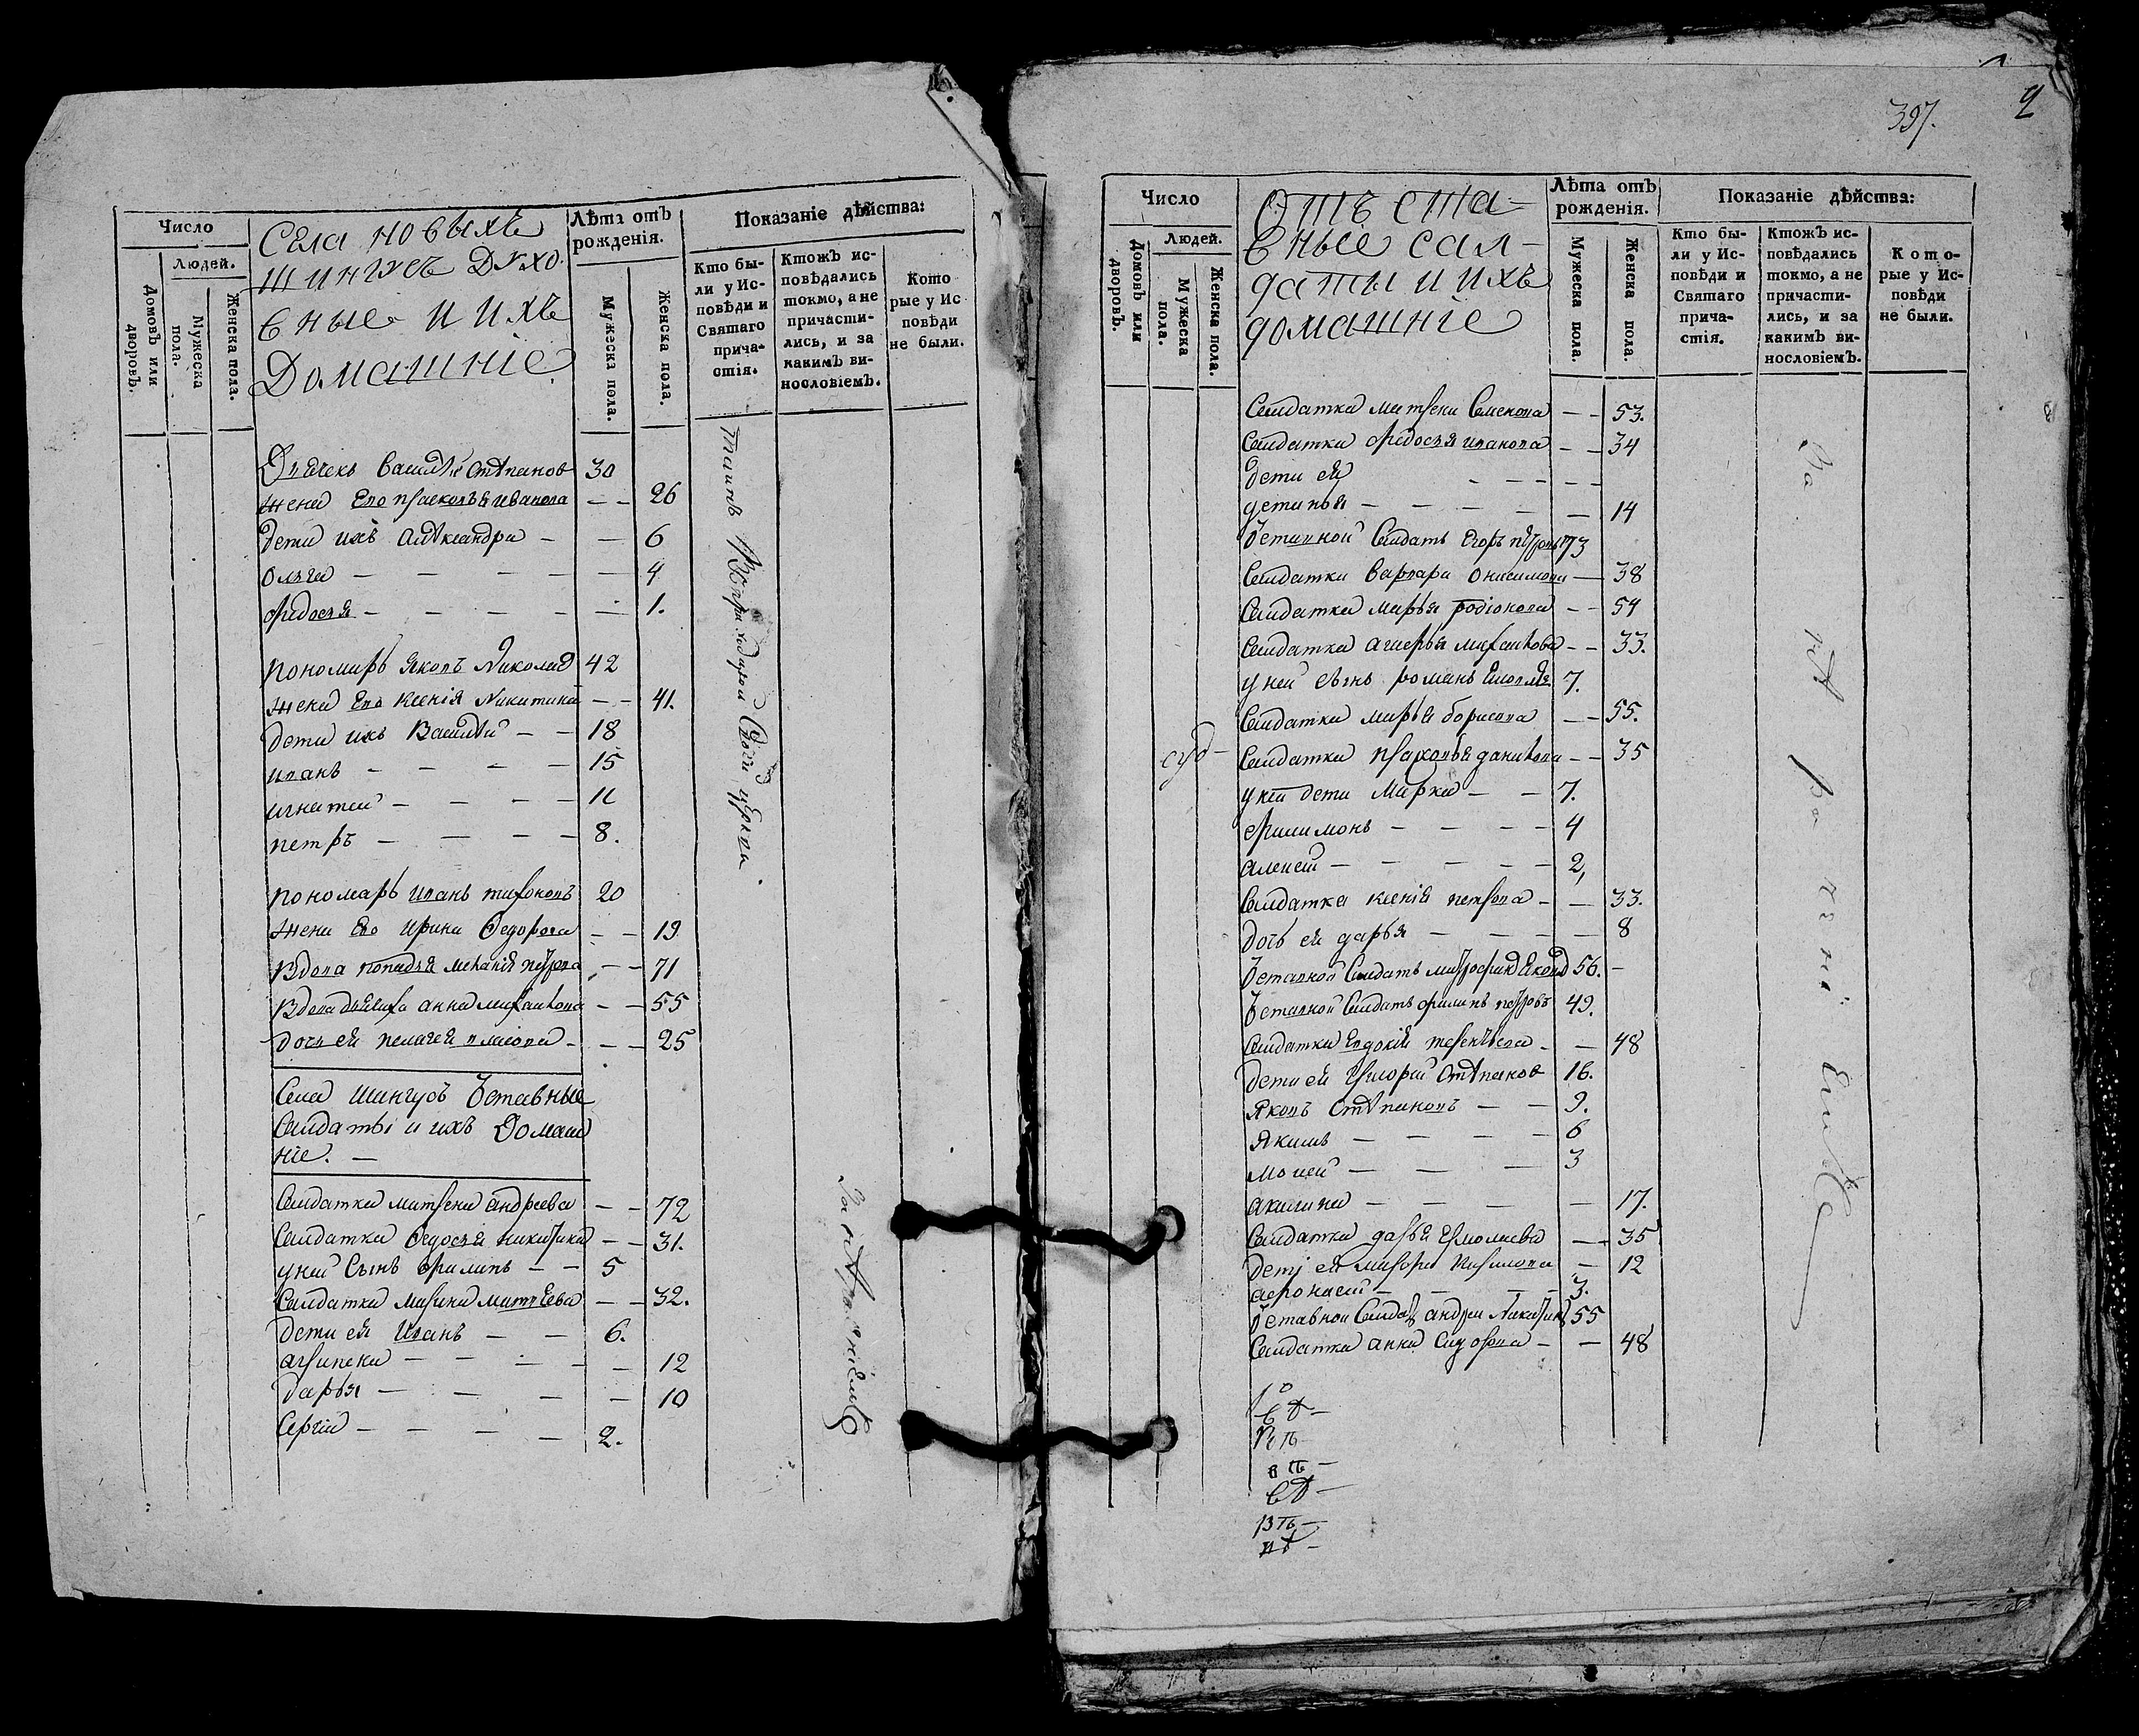 Число
Людей.
Домовъ или дворовъ.
Мужеска пола.
Женска пола.
Села новыхъ
шингусъ Духо-
вные и ихъ
Домашніе
Лѣта отъ рожденія.
Мужеска пола.
Женска пола.
Показаніе дѣйства:
Кто бы-
ли у Ис-
повѣди и
Святаго
прича-
стія.
Ктожъ ис-
повѣдались
токмо, а не
причасти-
лись, и за
какимъ ви-
нословіемъ.
Кото
рые у Ис
повѣди
не были.
Дьячекъ Василѣй Стѣпанов 30
жена Ево прасковья иванова — — 26
дети ихъ Алѣксандра — — 6
Ольга — — — — — 4
Федосья — — — — — 1.
пономарь яковъ Николаѣ 42
жена Ево Ксенія Никитина — — 41.
дети ихъ Василѣй — — 18
иванъ — — — — 15
игнатей — — — — 11
петръ — — — — 8.
пономарь иванъ тихоновъ 20
жена Ево Ирина Федорова — — 19
Вдова попадья меланія петрова — — 71
Вдова дьячиха анна михаилова — — 55
дочь ей пелагея власова — — — 25
Села Шингусъ Отставные
Салдаты и ихъ Домаш
ніе. —
Салдатка матрена андреева — — 72
Салдатка Федосья никитина — — 31.
у ней Сынъ Филипъ — — 5
Салдатка марина матвеева — — 32.
дети ей Иванъ — — 6.
агрипена — — — — — 12
дарья — — — — — 10
Сергей — — — — 2.
За нѣраченіемъ
397.
2
Число
Людей.
Домовъ или дворовъ.
Мужеска пола.
Женска пола.
Отъста-
вные сал-
даты и ихъ
домашніе
Лѣта отъ рожденія.
Мужеска пола.
Женска пола.
Показаніе дѣйства:
Кто бы-
ли у Ис-
повѣди и
Святаго
прича-
стія.
Ктожъ ис-
повѣдались
токмо, а не
причасти-
лись, и за
какимъ ви-
нословіемъ.
Кото-
рые у Ис-
повѣди
не были.
Салдатка матрена Семенова — — 53.
Салдатка Федосья иванова — — 34
дети ей — — — — —
устинья — — — — — 14
Отставной Салдатъ Егоръ петровъ 73
Салдатка варвара онисимова — 38
Салдатка марья родіонова — — 54
Салдатка михаилова — — 33.
у ней сынъ романъ 7.
Салдатка марья борисова — — 55.
Салдатка прасковья данилова — — 35
у ней дети Марка — — 7.
филимонъ — — — — 4
алексей — — — — — 2,
Салдатка ксенія петрова — — 33.
дочь ей дарья — — — — 8
Отставной Салдатъ митрофанъ 56. —
Отставной Салдатъ филипъ петровъ 49.
Салдатка Евдокія терентьева — — 48
дети ей григорий Стѣпанов 16.
Яковъ Стѣпановъ — — 9.
Якимъ — — — — 6
Моисей — — — 3
акилина — — — — — 17.
Салдатка дарья Ермолаева — — 35
дети ей — 12
афонасей — — — — 3.
Отставной Салдатъ андрей Никитин 55
Салдатка анна Сидорова — — 48
За нѣраченіемъ